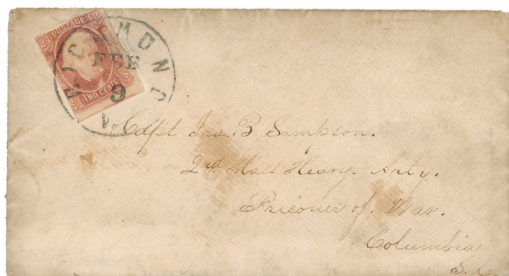 POSTAGE
TWO CENTS
RICHMOND
FEB
9
VA.
Capt Ira. B. Sampson.
2nd Mass Heavy. Arty.
Prisoner of War.
Columbia
S. C.